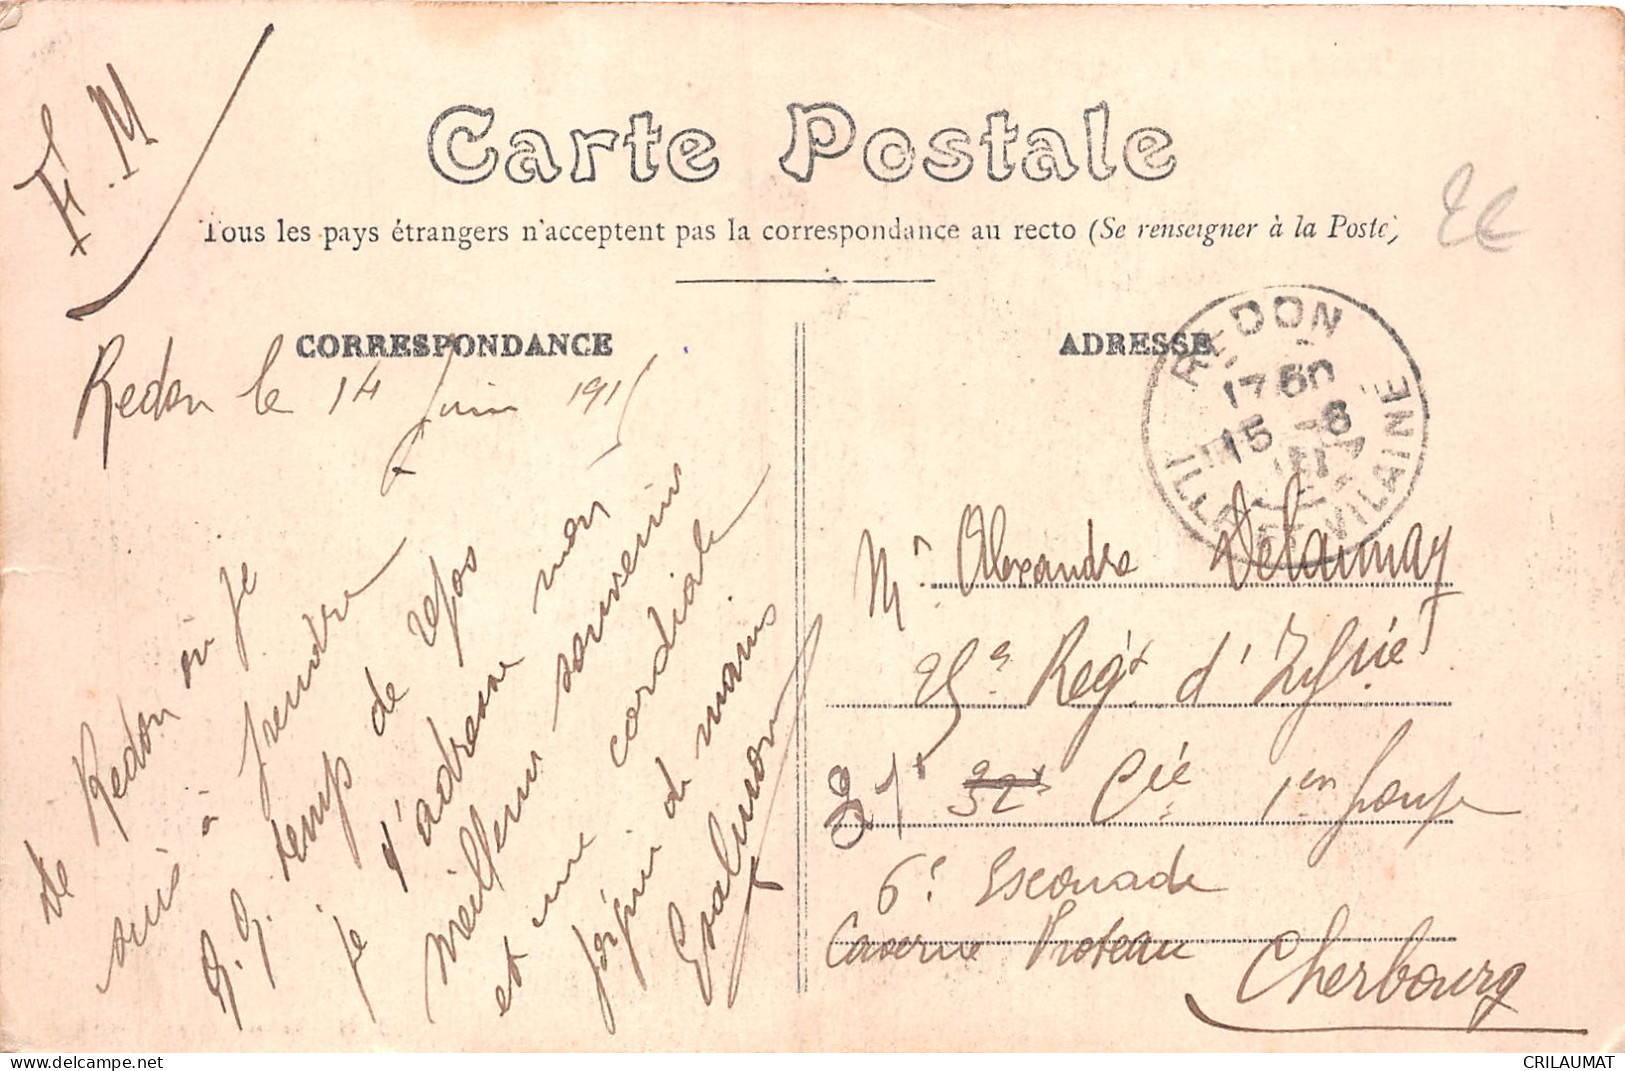 F.M
Carte Postale
Tous les pays étrangers n'acceptent pas la correspondance au recto (Se renseigner à la Poste)
2€
CORRESPONDANCE
Redon le 14 Juin 1915
de Redon ou je
suis à prendre
q.q. temps de repos
je t'adresse mon
meilleur souvenir
et une cordiale
poignée de mains
ADRESSE
REDON
17 50
15 -6
ILLE ET VILAINE
Mr Alexandre Delaunay
25e Regt d'Infrie
31e 32e Cie 1er Groupe
6e Escouade
Caserne Proteau
Cherbourg
delcampe.net
CRILAUMAT